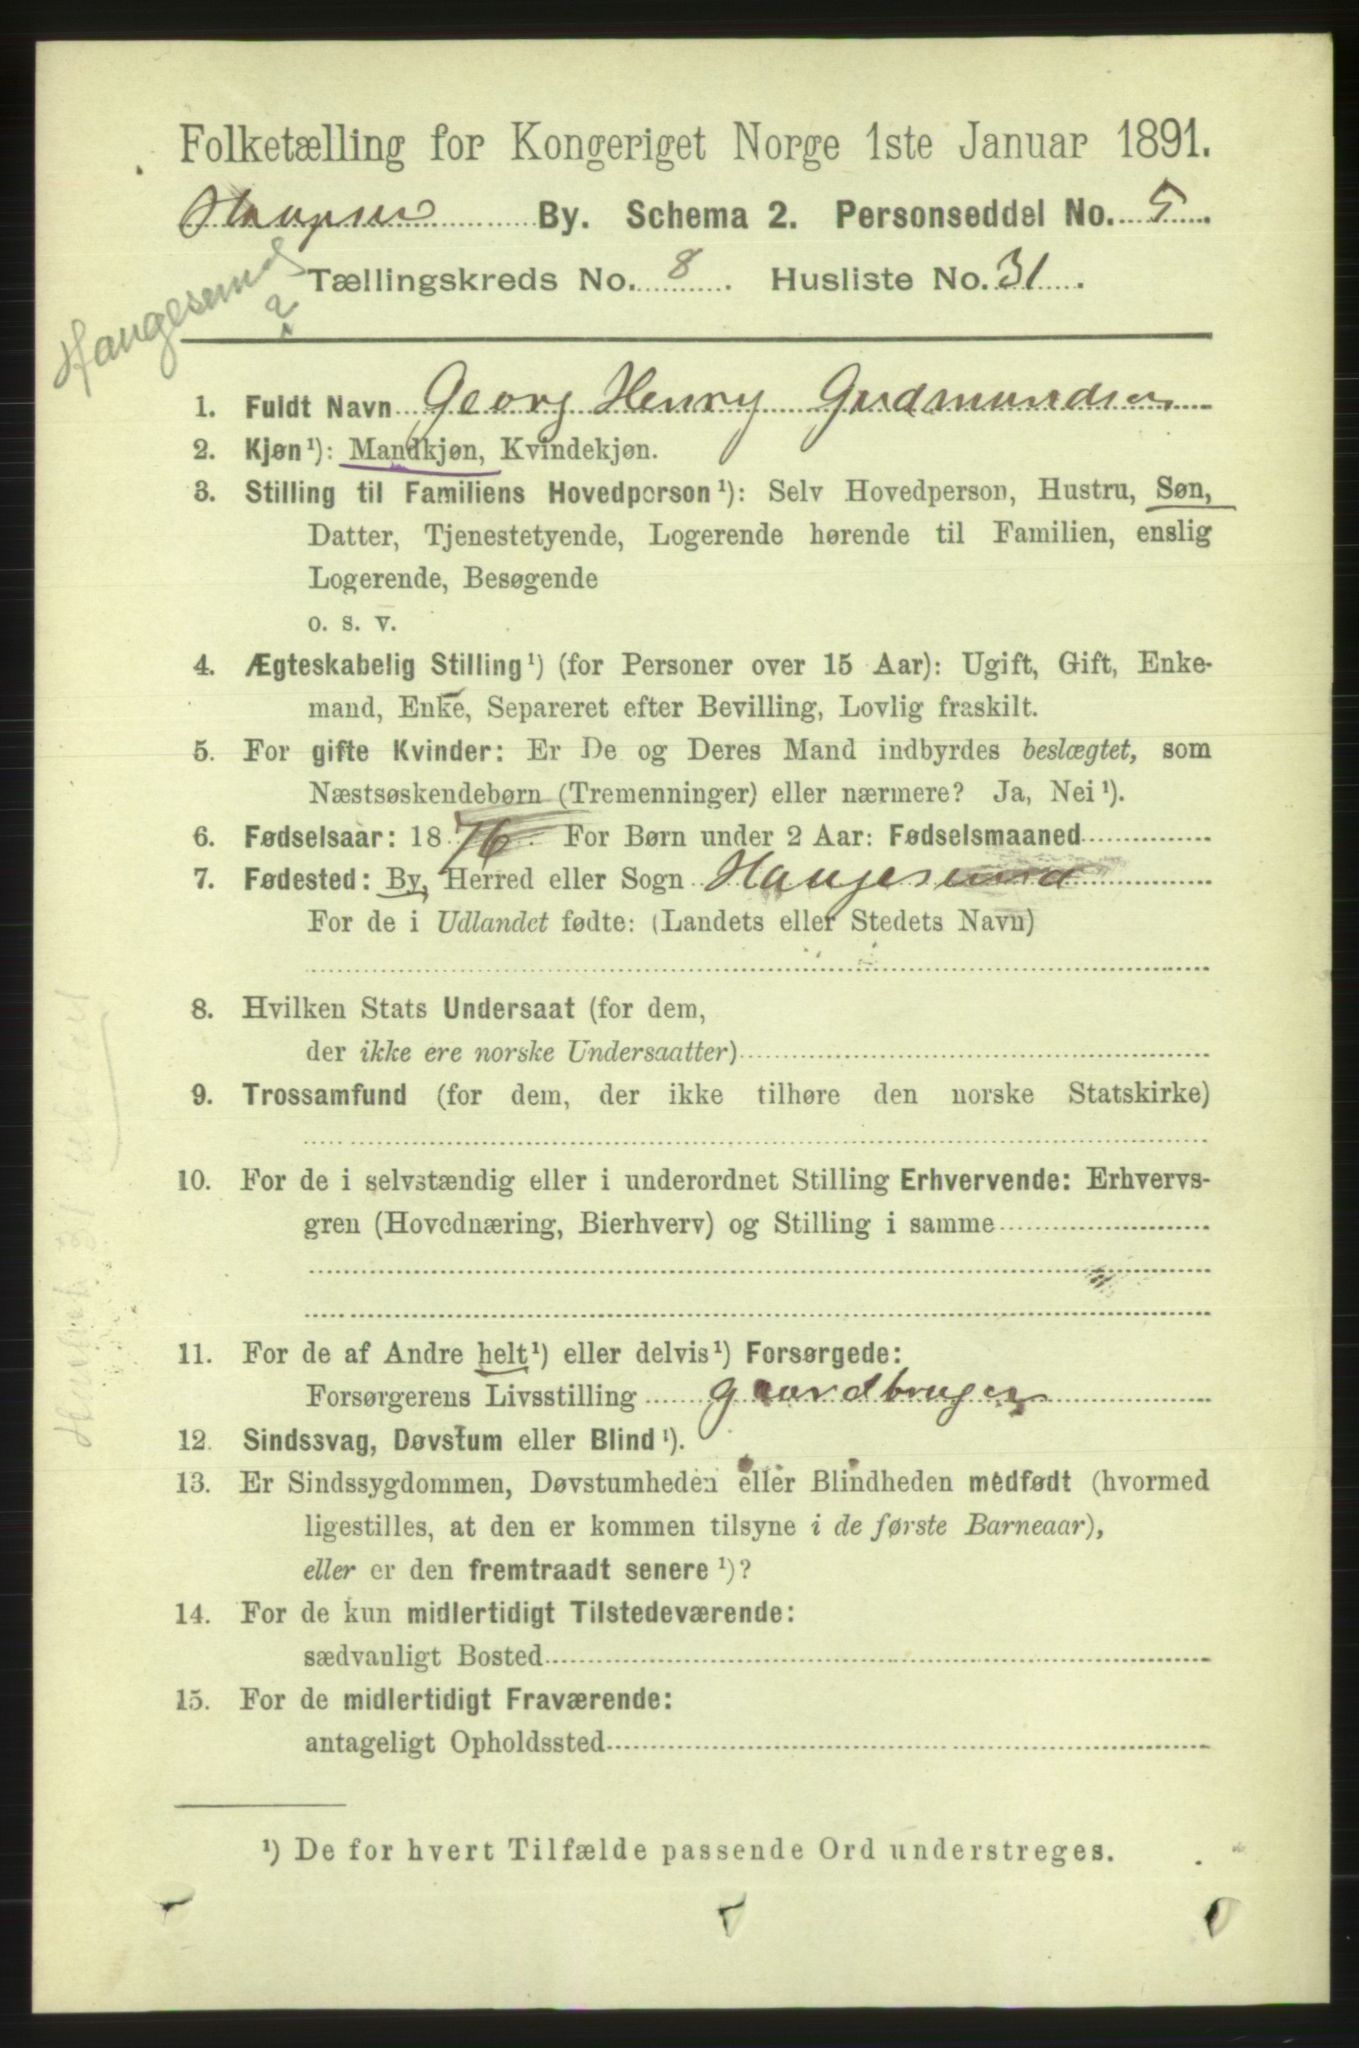 Folketælling for Kongeriget Norge 1ste Januar 1891.
By. Schema 2. Personseddel No. 5.
Haugesund
2
Tællingskreds No. 8. Husliste No. 31.
1. Fuldt Navn Georg Henry Gudmundsen
2. Kjøn¹): Mandkjøn, Kvindekjøn.
3. Stilling til Familiens Hovedperson¹): Selv Hovedperson, Hustru, Søn,
Datter, Tjenestetyende, Logerende hørende til Familien, enslig
Logerende, Besøgende
o. s. v.
4. Ægteskabelig Stilling¹) (for Personer over 15 Aar): Ugift, Gift, Enke-
mand, Enke, Separeret efter Bevilling, Lovlig fraskilt.
5. For gifte Kvinder: Er De og Deres Mand indbyrdes beslægtet, som
Næstsøskendebørn (Tremenninger) eller nærmere? Ja, Nei¹).
6. Fødselsaar: 1876. For Børn under 2 Aar: Fødselsmaaned
7. Fødested: By, Herred eller Sogn Haugesund
For de i Udlandet fødte: (Landets eller Stedets Navn)
8. Hvilken Stats Undersaat (for dem,
der ikke ere norske Undersaatter)
9. Trossamfund (for dem, der ikke tilhøre den norske Statskirke)
10. For de i selvstændig eller i underordnet Stilling Erhvervende: Erhvervs-
gren (Hovednæring, Bierhverv) og Stilling i samme
11. For de af Andre helt¹) eller delvis¹) Forsørgede:
Forsørgerens Livsstilling gaardbruger
12. Sindssvag, Døvstum eller Blind¹).
13. Er Sindssygdommen, Døvstumheden eller Blindheden medfødt (hvormed
ligestilles, at den er kommen tilsyne i de første Barneaar),
eller er den fremtraadt senere¹)?
14. For de kun midlertidigt Tilstedeværende:
sædvanligt Bosted
15. For de midlertidigt Fraværende:
antageligt Opholdssted
¹) De for hvert Tilfælde passende Ord understreges.